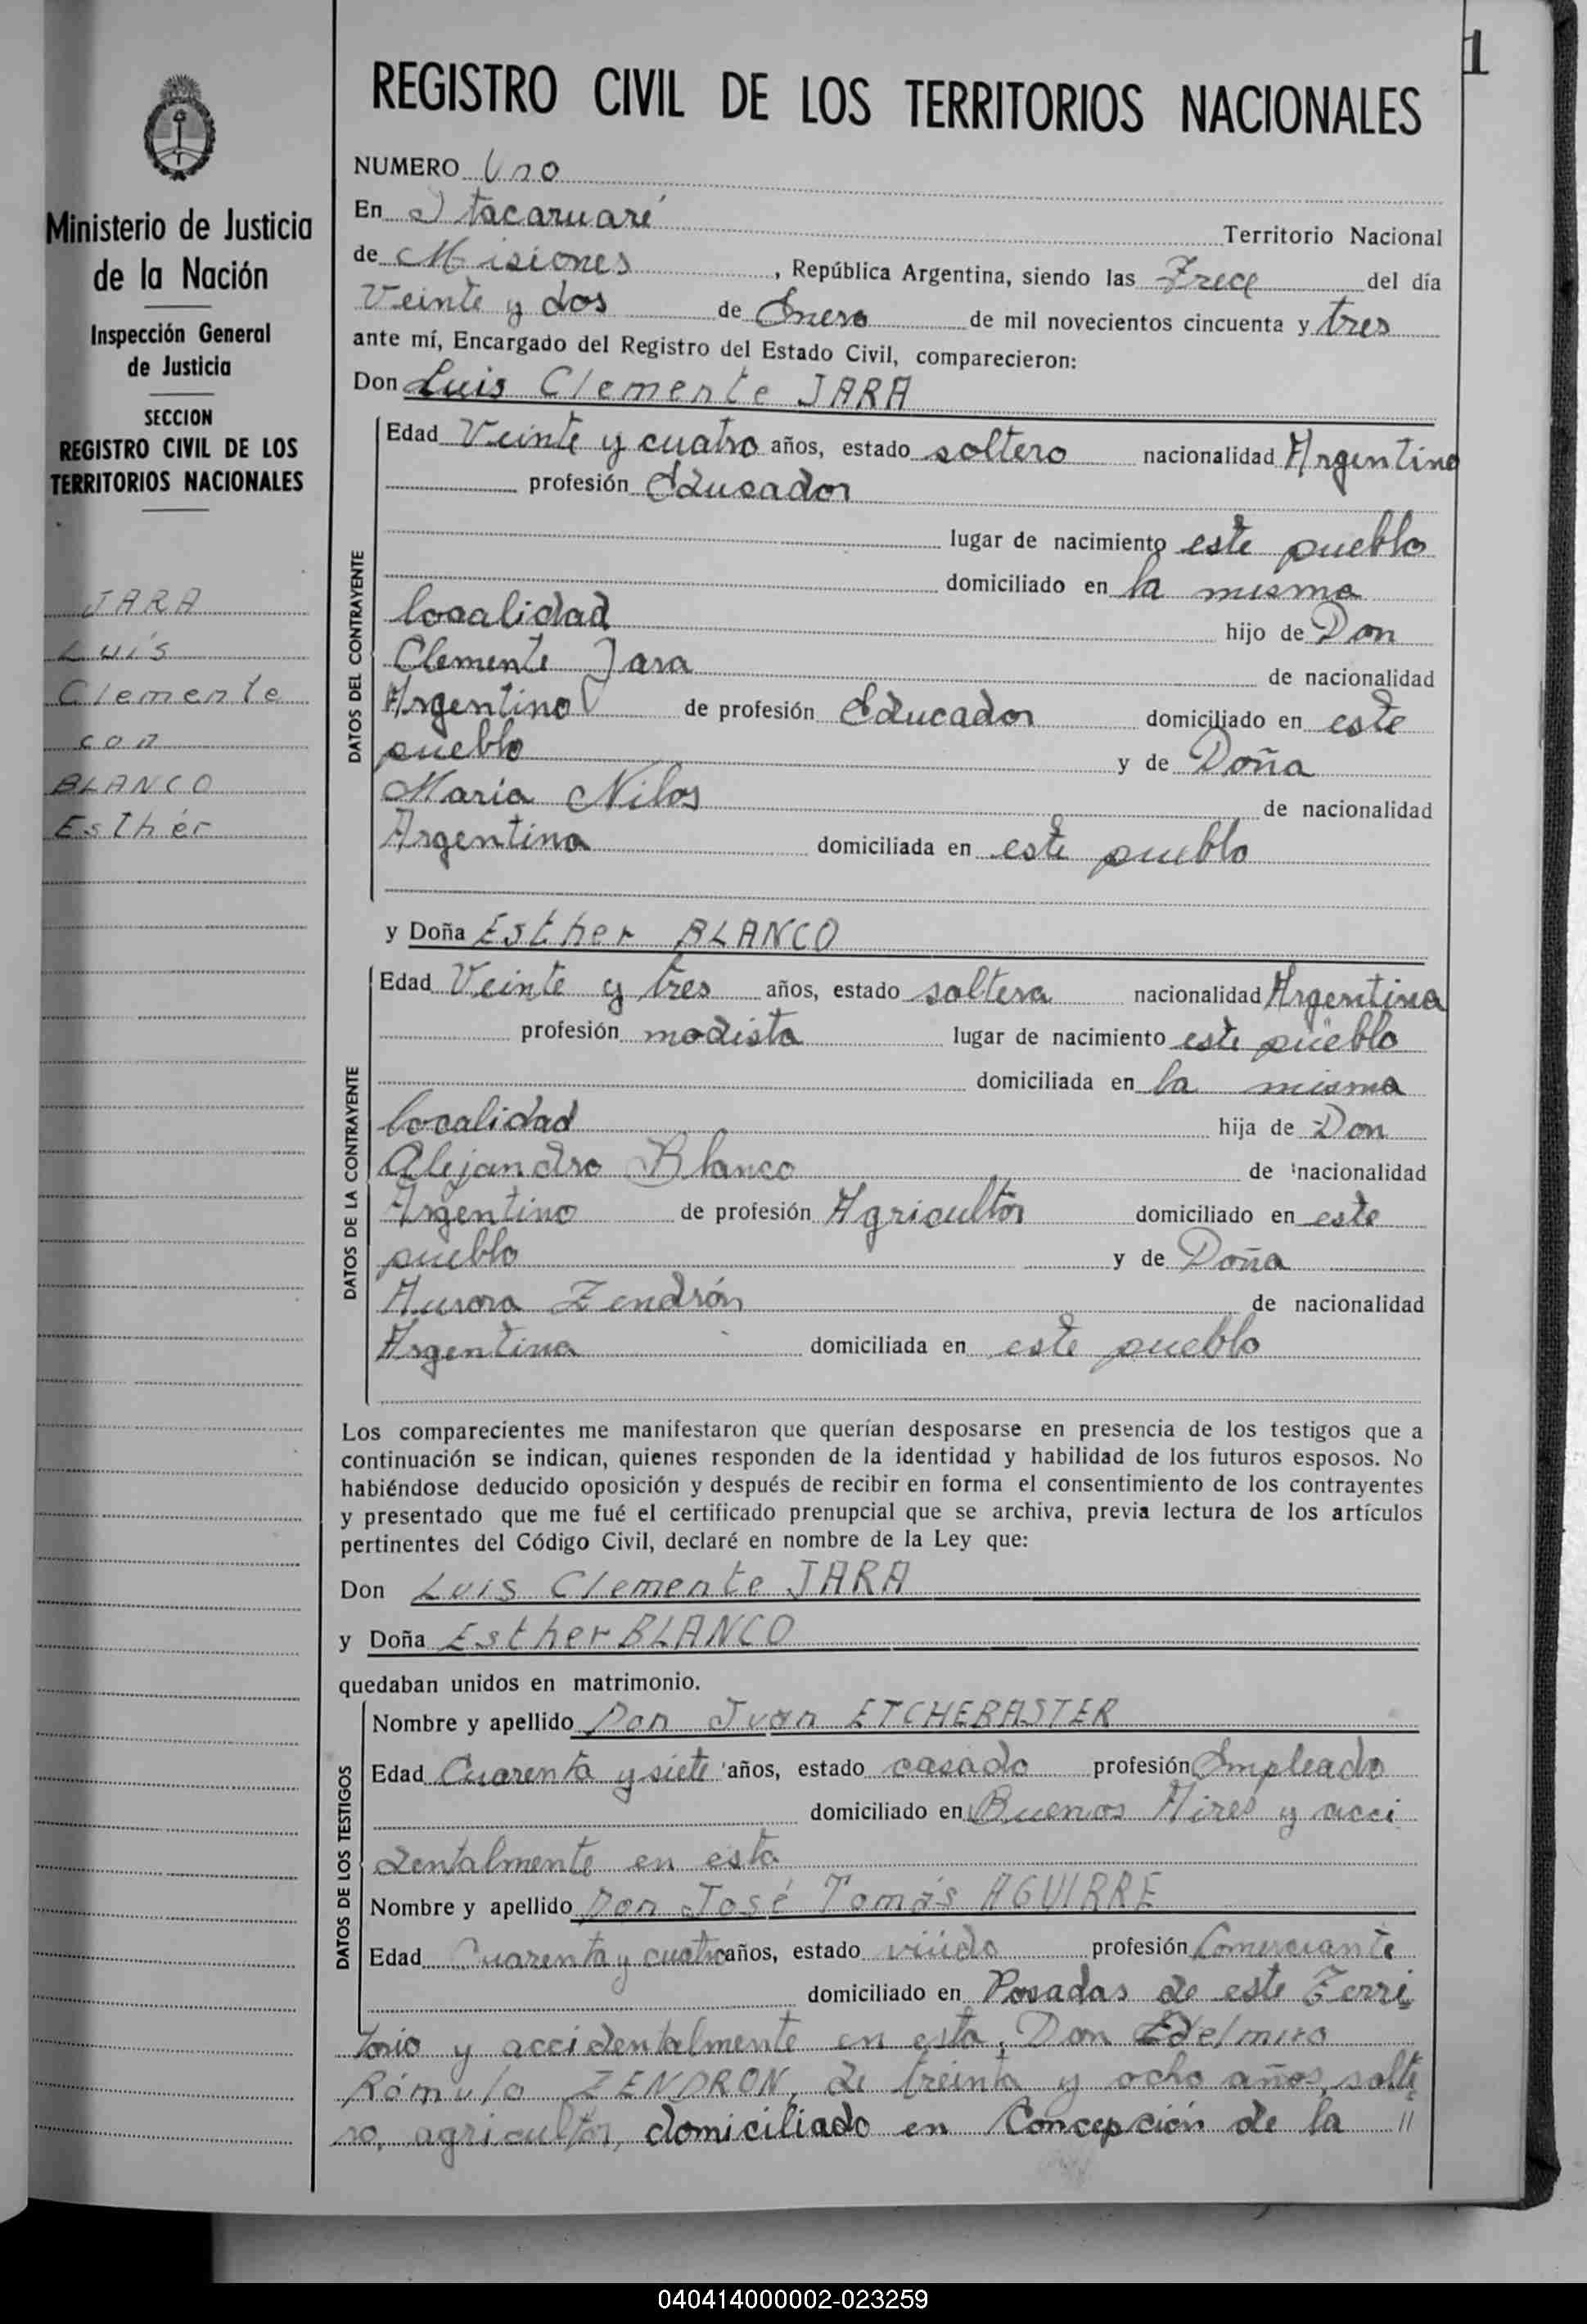 1
REGISTRO CIVIL DE LOS TERRITORIOS NACIONALES
Ministerio de Justicia
de la Nación
Inspección General
de Justicia
SECCION
REGISTRO CIVIL DE LOS
TERRITORIOS NACIONALES
JARA
Luis
Clemente
con
BLANCO
Esthér
NUMERO Uno
En Itacaruaré Territorio Nacional
de Misiones, República Argentina, siendo las Trece del día
Veinte y dos de Enero de mil novecientos cincuenta y tres
ante mí, Encargado del Registro del Estado Civil, comparecieron:
Don Luis Clemente JARA
DATOS DEL CONTRAYENTE
Edad Veinte y cuatro años, estado soltero nacionalidad Argentino
profesión Educador
lugar de nacimiento este pueblo
domiciliado en la misma
localidad hijo de Don
Clemente Jara de nacionalidad
Argentino de profesión Educador domiciliado en este
pueblo y de Doña
Maria Nilos de nacionalidad
Argentina domiciliada en este pueblo
y Doña Esther BLANCO
DATOS DE LA CONTRAYENTE
Edad Veinte y tres años, estado soltera nacionalidad Argentina
profesión modista lugar de nacimiento este pueblo
domiciliada en la misma
localidad hija de Don
Alejandro Blanco de nacionalidad
Argentino de profesión Agricultor domiciliado en este
pueblo y de Doña
Aurora Zendrón de nacionalidad
Argentina domiciliada en este pueblo
Los comparecientes me manifestaron que querían desposarse en presencia de los testigos que a
continuación se indican, quienes responden de la identidad y habilidad de los futuros esposos. No
habiéndose deducido oposición y después de recibir en forma el consentimiento de los contrayentes
y presentado que me fué el certificado prenupcial que se archiva, previa lectura de los artículos
pertinentes del Código Civil, declaré en nombre de la Ley que:
Don Luis Clemente JARA
y Doña Esther BLANCO
quedaban unidos en matrimonio.
DATOS DE LOS TESTIGOS
Nombre y apellido Don Juan ETCHEBASTER
Edad Cuarenta y siete años, estado casado profesión Empleado
domiciliado en Buenos Aires y acci
dentalmente en esta
Nombre y apellido Don José Tomás AGUIRRE
Edad Cuarenta y cuatro años, estado viúdo profesión Comerciante
domiciliado en Posadas de este Terri
torio y accidentalmente en esta, Don Edelmiro
Rómulo ZENDRON, de treinta y ocho años, solte
ro, agricultor, domiciliado en Concepción de la //
040414000002-023259